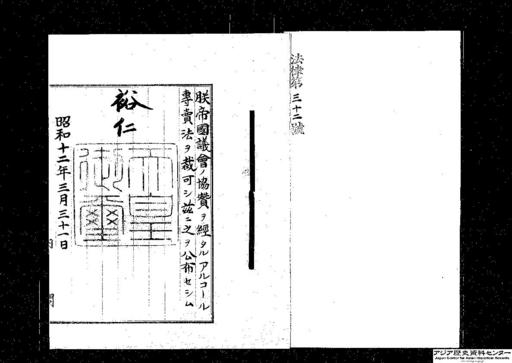 法律第三十二號
朕帝國議會ノ協贊ヲ經タルアルコール
專賣法ヲ裁可シ茲ニ之ヲ公布セシム
裕仁
天皇御璽
昭和十二年三月三十一日
アジア歴史資料センター